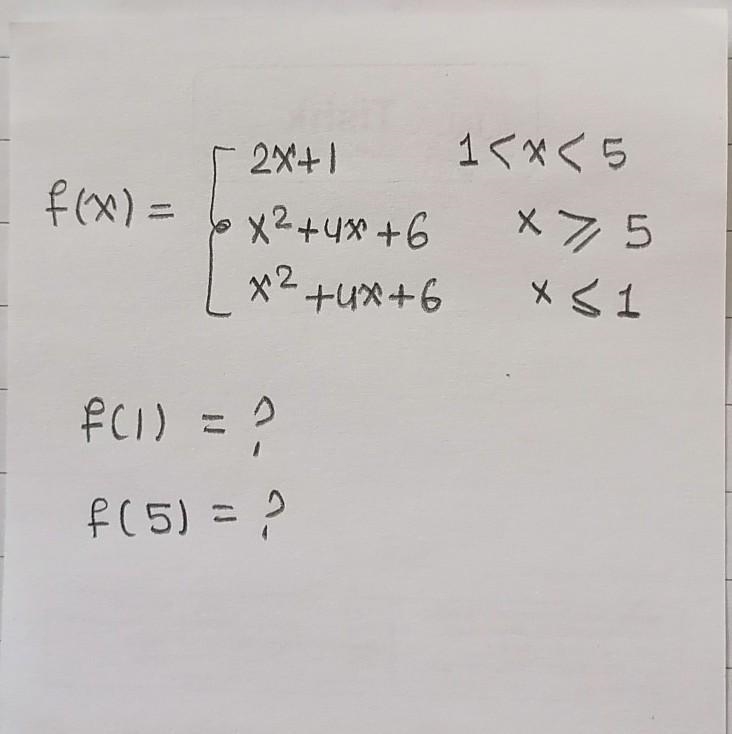 f(x) = { 2x+1 1<x<5
x²+4x+6 x⩾5
x²+4x+6 x⩽1
f(1) = ?
f(5) = ?